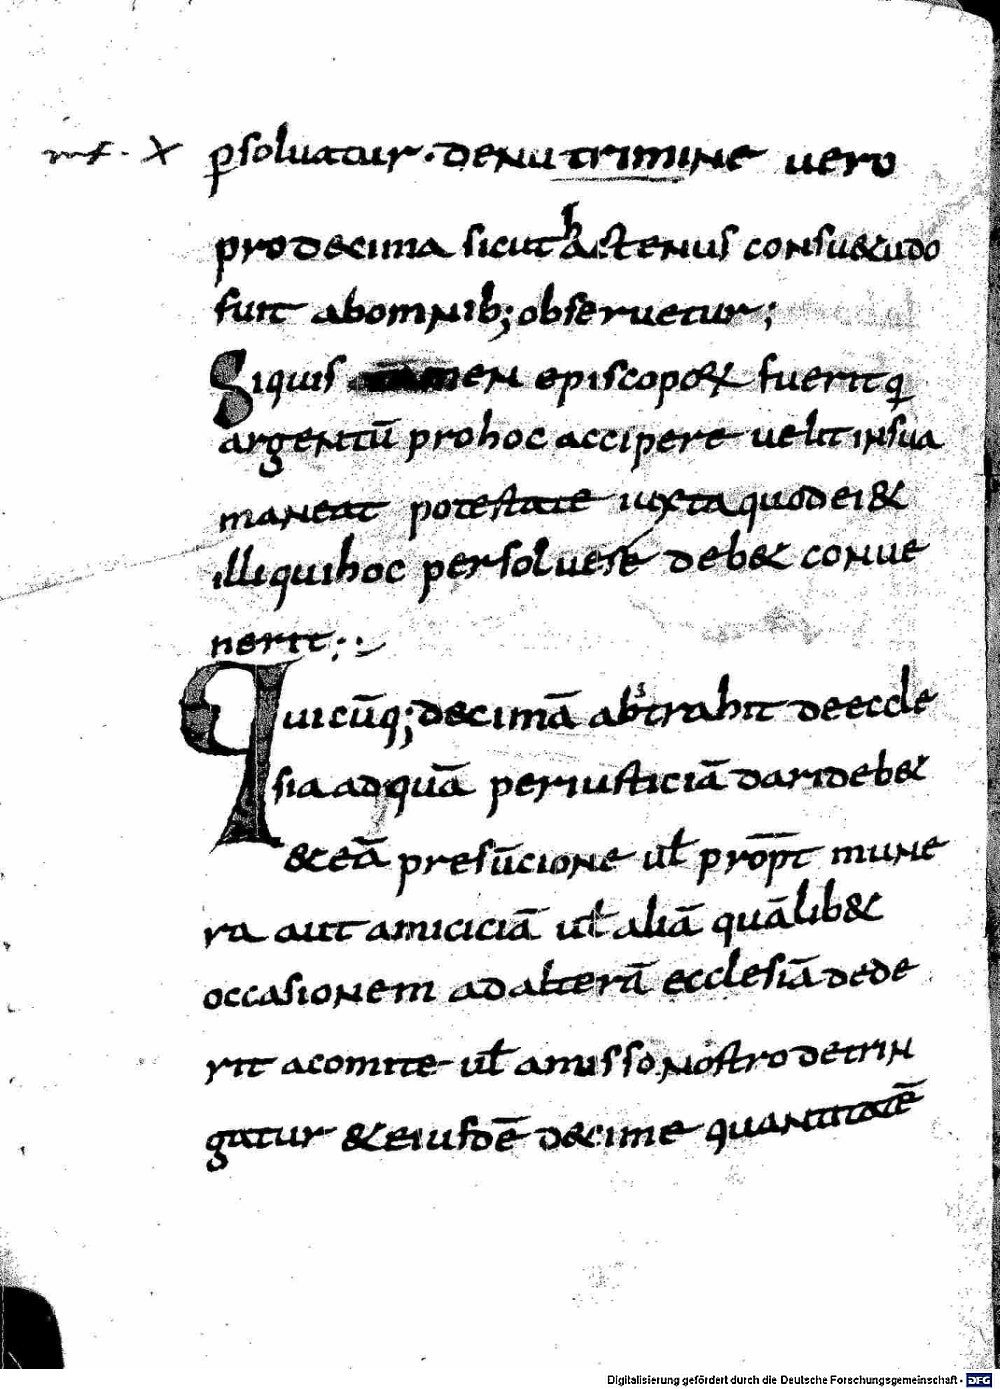 psoluatur. denutrimine uero
prodecima sicut hactenus consu&udo
fuit abomnib; obseruetur;
Siquis tamen episcopo℞ fuerit q
argentū prohoc accipere uelit insua
maneat potestate iuxta quodei&
illi quihoc persoluere deb& conue
nerit;
Quicūq; decimā abstrahit deeccle
sia adquā per iusticiā dari deb&
&eā presūcione uł propt mune
ra aut amiciciā uł aliā quālib&
occasionem ad alterā ecclesiā dede
rit acomite uł amisso nostro detrin
gatur &eiusdē decime quantitatē
Digitalisierung gefördert durch die Deutsche Forschungsgemeinschaft - DFG